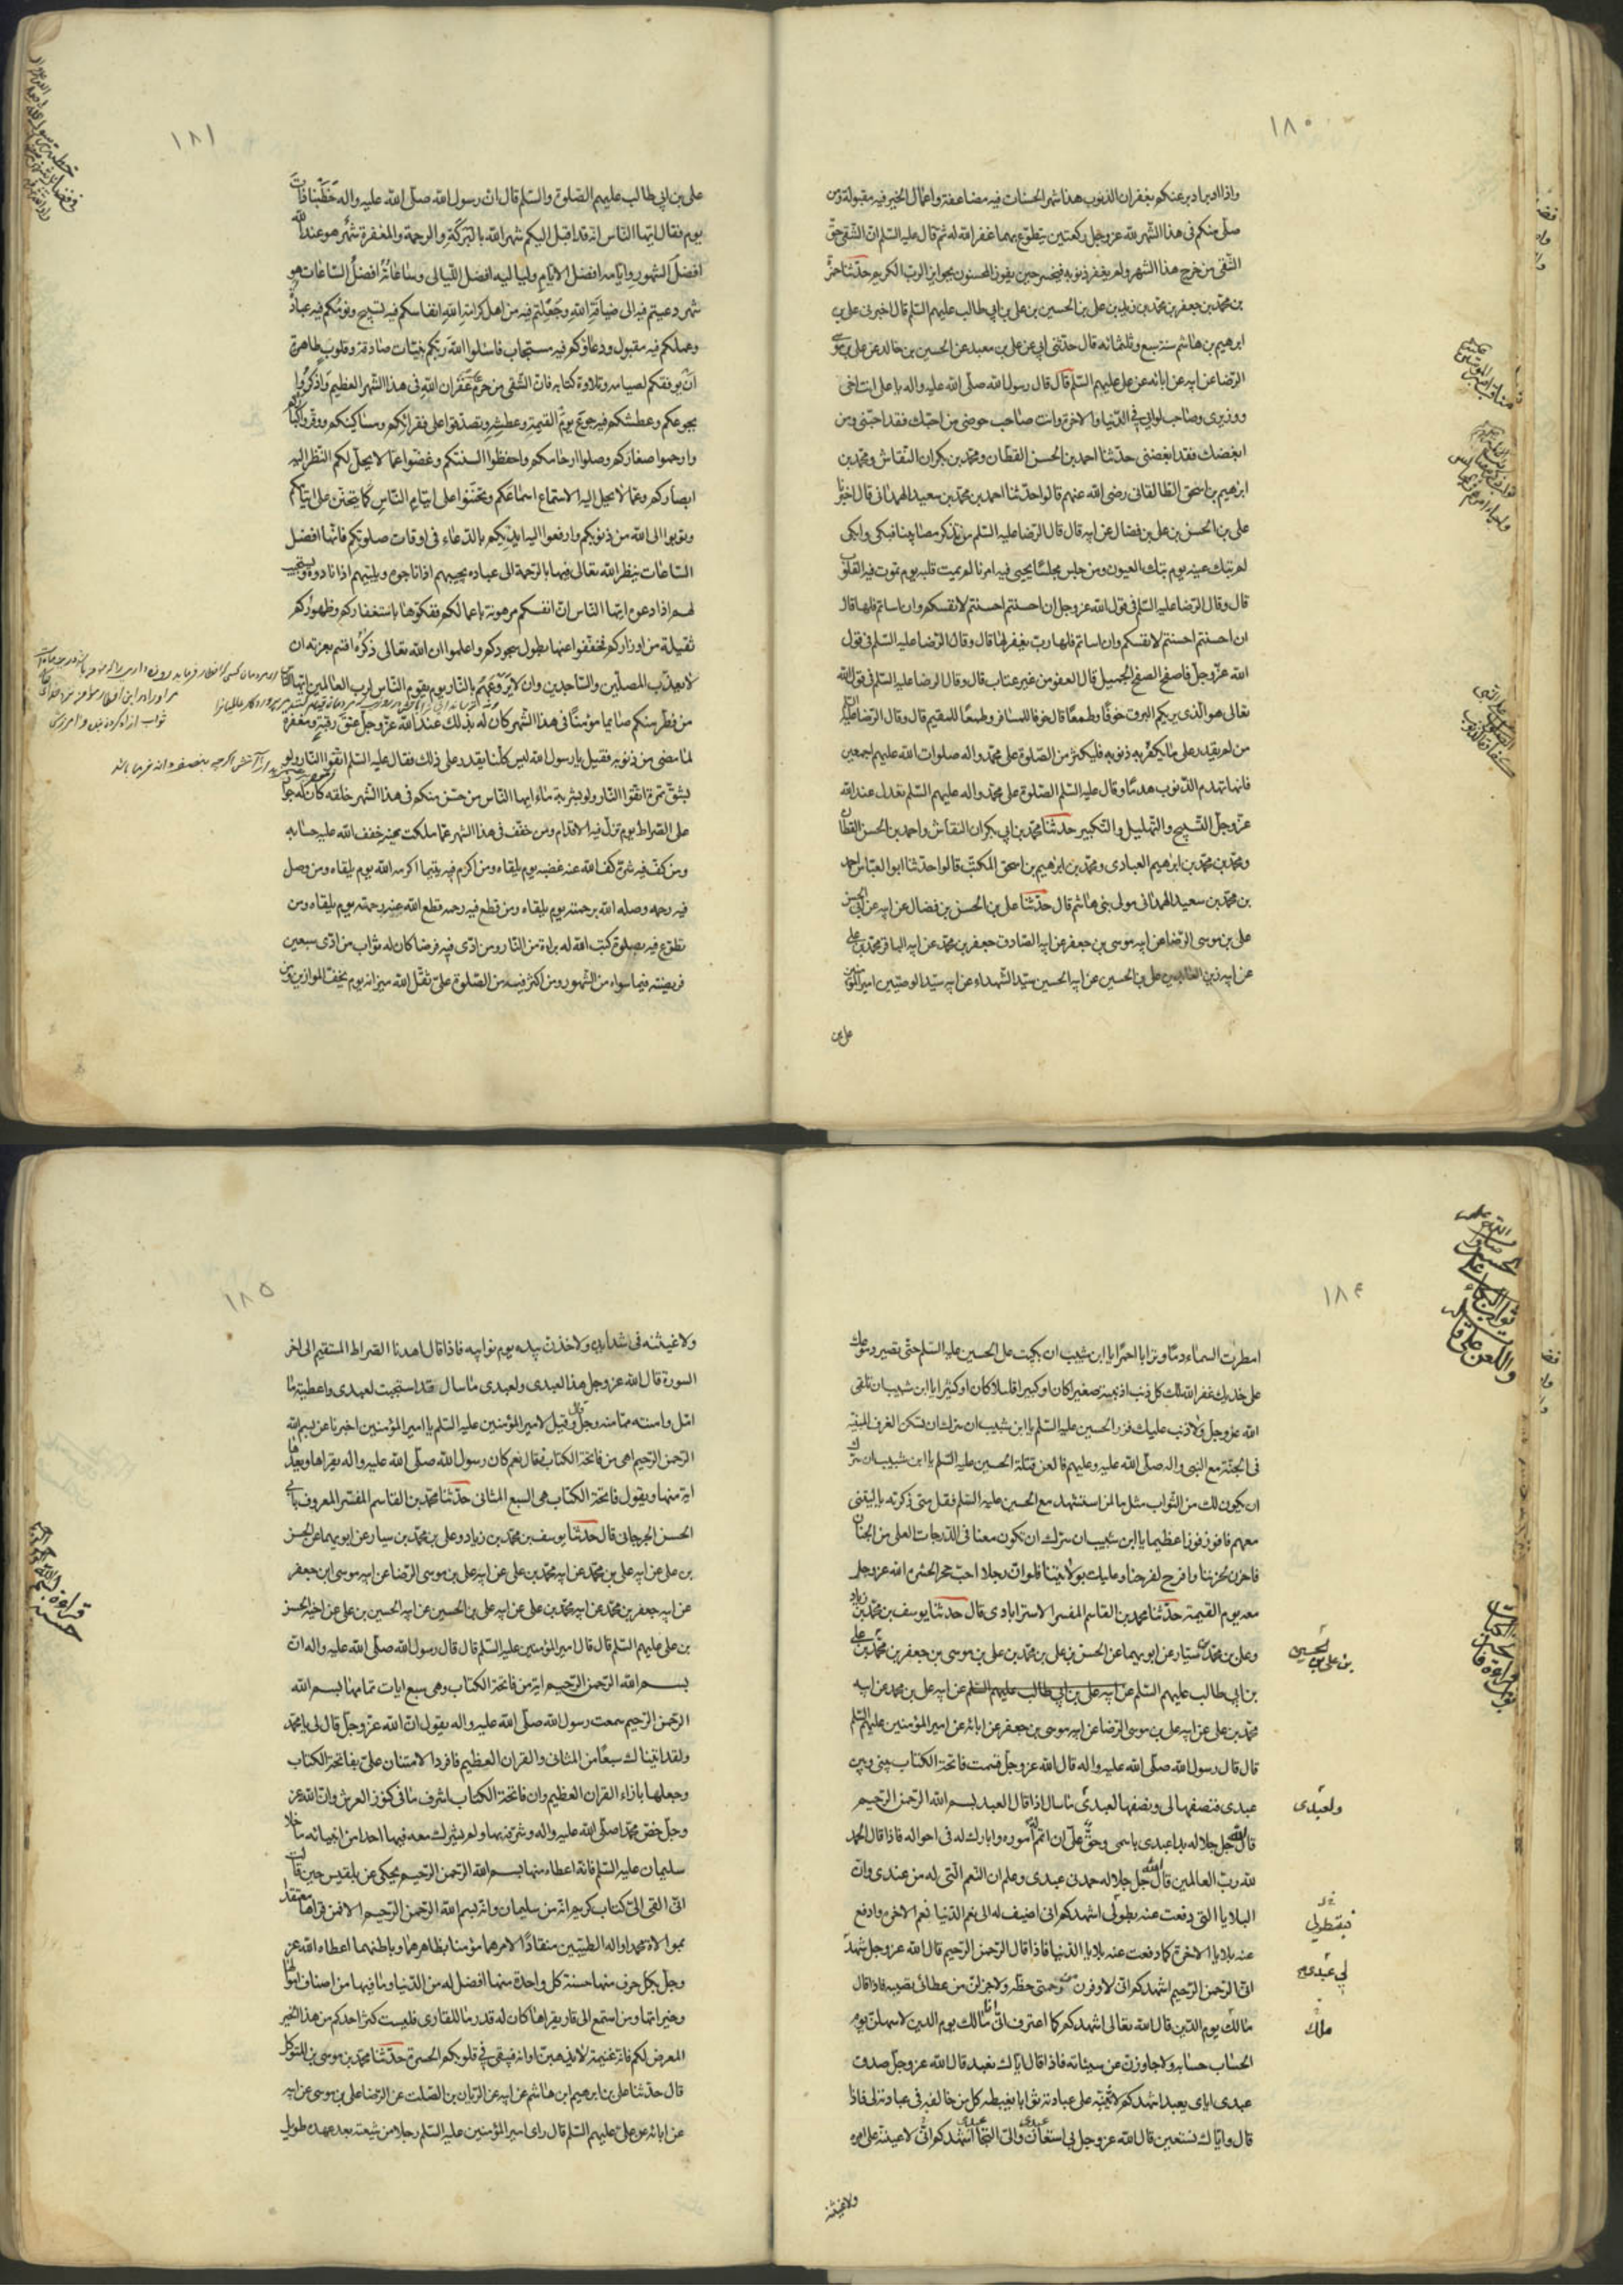 ١٨٠
واذا ادبر ادبر عنكم بغفران الذنوب هذا شهر الحسنات فيه مضاعفة واعمال الخير فيه مقبولة ومن
صلى منكم فى هذا الشهر لله عز وجل ركعتين يتطوع بهما غفر الله له ثم قال عليه السلم ان الشقى حق
الشقى من خرج هذا الشهر ولم يغفر ذنوبه فيخسر حين يفوز المحسنون بجوايز الرب الكريم حدثنا حمزة
بن محمد بن جعفر بن محمد بن زيد بن على بن الحسين بن على بن ابى طالب عليهم السلم قال اخبرنى على بن
ابرهيم بن هاشم سنة سبع وثلثمائة قال حدثنى ابى عن على بن معبد عن الحسين بن خالد عن على بن موسى
الرضا عن ابيه عن ابائه عن على عليهم السلم قال قال رسول الله صلى الله عليه واله يا على انت اخى
ووزيرى وصاحب لوائى فى الدنيا والاخرة وانت صاحب حوضى من احبك فقد احبنى ومن
ابغضك فقد ابغضنى حدثنا احمد بن الحسن القطان ومحمد بن بكران النقاش ومحمد بن
ابرهيم بن اسحق الطالقانى رضى الله عنهم قالوا حدثنا احمد بن محمد بن سعيد الهمدانى قال اخبرنا
على بن الحسن بن على بن فضال عن ابيه قال قال الرضا عليه السلم من تذكر مصابنا فبكى وابكى
لم تبك عينه يوم تبك العيون ومن جلس مجلسا يحيى فيه امرنا لم يمت قلبه يوم تموت فيه القلوب
قال وقال الرضا عليه السلم فى قول الله عز وجل ان احسنتم احسنتم لانفسكم وان اساتم فلها قال
ان احسنتم احسنتم لانفسكم وان اساتم فلها رب يغفر لها قال وقال الرضا عليه السلم فى قول
الله عز وجل فاصفح الصفح الجميل قال العفو من غير عتاب قال وقال الرضا عليه السلم فى قول الله
تعالى هو الذى يريكم البرق خوفا وطمعا قال خوفا للمسافر وطمعا للمقيم قال وقال الرضا عليه السلم
من لم يقدر على ما يكفر به ذنوبه فليكثر من الصلوة على محمد واله صلوات الله عليهم اجمعين
فانها تهدم الذنوب هدما وقال عليه السلم الصلوة على محمد واله عليهم السلم تعدل عند الله
عز وجل التسبيح والتهليل والتكبير حدثنا محمد بن ابى بكران النقاش واحمد بن الحسن القطان
ومحمد بن محمد بن ابرهيم العبادى ومحمد بن ابرهيم بن اسحق المكتب قالوا حدثنا ابو العباس احمد
بن محمد بن سعيد الهمدانى مولى بنى هاشم قال حدثنا على بن الحسن بن فضال عن ابيه عن ابى الحسن
على بن موسى الرضا عن ابيه موسى بن جعفر عن ابيه الصادق جعفر بن محمد عن ابيه الباقر محمد بن على
عن ابيه زين العابدين على بن الحسين عن ابيه الحسين سيد الشهداء عن ابيه سيد الوصيين امير المؤمنين
على بن
١٨١
على بن ابى طالب عليهم الصلوة والسلم قال ان رسول الله صلى الله عليه واله خطبنا ذات
يوم فقال ايها الناس انه قد اقبل اليكم شهر الله بالبركة والرحمة والمغفرة شهر هو عند الله
افضل الشهور وايامه افضل الايام ولياليه افضل الليالى وساعاته افضل الساعات هو
شهر دعيتم فيه الى ضيافة الله وجعلتم فيه من اهل كرامة الله انفاسكم فيه تسبيح ونومكم فيه عبادة
وعملكم فيه مقبول ودعاؤكم فيه مستجاب فاسئلوا الله ربكم بنيات صادقة وقلوب طاهرة
ان يوفقكم لصيامه وتلاوة كتابه فان الشقى من حرم غفران الله فى هذا الشهر العظيم واذكروا
بجوعكم وعطشكم فيه جوع يوم القيمة وعطشه وتصدقوا على فقرائكم ومساكينكم ووقروا كباركم
وارحموا صغاركم وصلوا ارحامكم واحفظوا السنتكم وغضوا عما لا يحل لكم النظر اليه
ابصاركم وعما لا يحل اليه الاستماع اسماعكم وتحننوا على ايتام الناس كما يتحنن على ايتامكم
وتوبوا الى الله من ذنوبكم وارفعوا اليه ايديكم بالدعاء فى اوقات صلوتكم فانها افضل
الساعات ينظر الله تعالى فيها بالرحمة الى عباده يجيبهم اذا ناجوه ويلبيهم اذا نادوه ويستجيب
لهم اذا دعوه ايها الناس ان انفسكم مرهونة باعمالكم ففكوها باستغفاركم وظهوركم
ثقيلة من اوزاركم فخففوا عنها بطول سجودكم واعلموا ان الله تعالى ذكره اقسم بعزته ان
لا يعذب المصلين والساجدين وان لا يروعهم بالنار يوم يقوم الناس لرب العالمين ايها الناس
من فطر منكم صايما مؤمنا فى هذا الشهر كان له بذلك عند الله عز وجل عتق رقبة ومغفرة
لما مضى من ذنوبه فقيل يا رسول الله ليس كلنا يقدر على ذلك فقال عليه السلم اتقوا النار ولو
بشق تمرة اتقوا النار ولو بشربة ماء ايها الناس من حسن منكم فى هذا الشهر خلقه كان له جواز
على الصراط يوم تزل فيه الاقدام ومن خفف فى هذا الشهر عما ملكت يمينه خفف الله عليه حسابه
ومن كف فيه شره كف الله عنه غضبه يوم يلقاه ومن اكرم فيه يتيما اكرمه الله يوم يلقاه ومن وصل
فيه رحمه وصله الله برحمته يوم يلقاه ومن قطع فيه رحمه قطع الله عنه رحمته يوم يلقاه ومن
تطوع فيه بصلوة كتب الله له براءة من النار ومن ادى فيه فرضا كان له ثواب من ادى سبعين
فريضة فيما سواه من الشهور ومن اكثر فيه من الصلوة على ثقل الله ميزانه يوم يخف الموازين ومن
١٨٤
امطرت السماء دما وترابا احمر يا ابن شبيب ان بكيت على الحسين عليه السلم حتى تصير دموعك
على خديك غفر الله لك كل ذنب اذنبته صغيرا كان او كبيرا قليلا كان او كثيرا يا ابن شبيب ان تلقى
الله عز وجل ولا ذنب عليك فزر الحسين عليه السلم يا ابن شبيب ان سرك ان تسكن الغرف المبنية
فى الجنة مع النبى واله صلى الله عليه وعليهم فالعن قتلة الحسين عليه السلم يا ابن شبيب ان سرك
ان يكون لك من الثواب مثل ما لمن استشهد مع الحسين عليه السلم فقل متى ذكرته يا ليتنى
معهم فافوز فوزا عظيما يا ابن شبيب ان سرك ان تكون معنا فى الدرجات العلى من الجنان
فاحزن لحزننا وافرح لفرحنا وعليك بولايتنا فلو ان رجلا احب حجرا لحشره الله عز وجل
معه يوم القيمة حدثنا محمد بن القاسم المفسر الاسترابادى قال حدثنا يوسف بن محمد بن زياد
وعلى بن محمد بن سيار عن ابويهما عن الحسن بن على بن محمد بن على بن موسى بن جعفر بن محمد بن على
بن على بن الحسين
بن ابى طالب عليهم السلم عن ابيه على بن ابى طالب عليهم السلم عن ابيه على بن محمد عن ابيه
محمد بن على عن ابيه على بن موسى الرضا عن ابيه موسى بن جعفر عن ابائه عن امير المؤمنين عليهم السلم
قال قال رسول الله صلى الله عليه واله قال الله عز وجل قسمت فاتحة الكتاب بينى وبين
عبدى فنصفها لى ونصفها لعبدى ما سال اذا قال العبد بسم الله الرحمن الرحيم
ولعبدى
قال الله جل جلاله بدا عبدى باسمى وحق على ان اتمم اموره وابارك له فى احواله فاذا قال الحمد
لله رب العالمين قال الله جل جلاله حمدنى عبدى وعلم ان النعم التى له من عندى وان
البلايا التى دفعت عنه بطولى اشهدكم انى اضيف له الى نعم الدنيا نعم الاخرة وادفع
فبتطولى
عنه بلايا الاخرة كما دفعت عنه بلايا الدنيا فاذا قال الرحمن الرحيم قال الله عز وجل شهد
لى عبدى
انى الرحمن الرحيم اشهدكم انى لاوفرن من رحمتى حظه ولاجزلن من عطائى نصيبه فاذا قال
مالك يوم الدين قال الله تعالى اشهدكم كما اعترف انى انا مالك يوم الدين لاسهلن يوم
ملك
الحساب حسابه ولاجاوزن عن سيئاته فاذا قال اياك نعبد قال الله عز وجل صدق
عبدى اياى يعبد اشهدكم لاثيبنه على عبادته ثوابا يغبطه كل من خالفه فى عبادته لى فاذا
قال واياك نستعين قال الله عز وجل بى استعان عبدى والى التجا اشهدكم انى لاعيننه على امره
ولاغيثنه
١٨٥
ولاغيثنه فى شدايده ولاخذن بيده يوم نوائبه فاذا قال اهدنا الصراط المستقيم الى اخر
السورة قال الله عز وجل هذا لعبدى ولعبدى ما سال قد استجبت لعبدى واعطيته ما
امل وامنته مما منه وجل قال وقيل لامير المؤمنين عليه السلم يا امير المؤمنين اخبرنا عن بسم الله
الرحمن الرحيم اهى من فاتحة الكتاب فقال نعم كان رسول الله صلى الله عليه واله يقراها ويعدها
اية منها ويقول فاتحة الكتاب هى السبع المثانى حدثنا محمد بن القاسم المفسر المعروف بابى
الحسن الجرجانى قال حدثنا يوسف بن محمد بن زياد وعلى بن محمد بن سيار عن ابويهما عن الحسن
بن على عن ابيه على بن محمد عن ابيه محمد بن على عن ابيه على بن موسى الرضا عن ابيه موسى ابن جعفر
عن ابيه جعفر بن محمد عن ابيه محمد بن على عن ابيه على بن الحسين عن ابيه الحسين بن على عن اخيه الحسن
بن على عليهم السلم قال قال امير المؤمنين عليه السلم قال قال رسول الله صلى الله عليه واله ان
بسم الله الرحمن الرحيم اية من فاتحة الكتاب وهى سبع ايات تمامها بسم الله
الرحمن الرحيم سمعت رسول الله صلى الله عليه واله يقول ان الله عز وجل قال لى يا محمد
ولقد اتيناك سبعا من المثانى والقران العظيم فافرد الامتنان على بفاتحة الكتاب
وجعلها بازاء القران العظيم وان فاتحة الكتاب اشرف ما فى كنوز العرش وان الله عز
وجل خص محمدا صلى الله عليه واله وشرفه بها ولم يشرك معه فيها احدا من انبيائه ما خلا
سليمان عليه السلم فانه اعطاه منها بسم الله الرحمن الرحيم يحكى عن بلقيس حين قالت
انى القى الى كتاب كريم انه من سليمان وانه بسم الله الرحمن الرحيم الا فمن قراها معتقدا
لموالاة محمد واله الطيبين منقادا لامرهما مؤمنا بظاهرهما وباطنهما اعطاه الله عز
وجل بكل حرف منها حسنة كل واحدة منها افضل له من الدنيا وما فيها من اصناف اموالها
وخيراتها ومن استمع الى قار يقراها كان له قدر ما للقارى فليستكثر احدكم من هذا الخير
المعرض لكم فانه غنيمة لا يذهبن اوانه فيبقى فى قلوبكم الحسرة حدثنا محمد بن موسى بن المتوكل
قال حدثنا على بن ابرهيم ابن هاشم عن ابيه عن الريان بن الصلت عن الرضا على بن موسى عن ابيه
عن ابائه عن على عليهم السلم قال راى امير المؤمنين عليه السلم رجلا من شيعته بعد عهد طويل